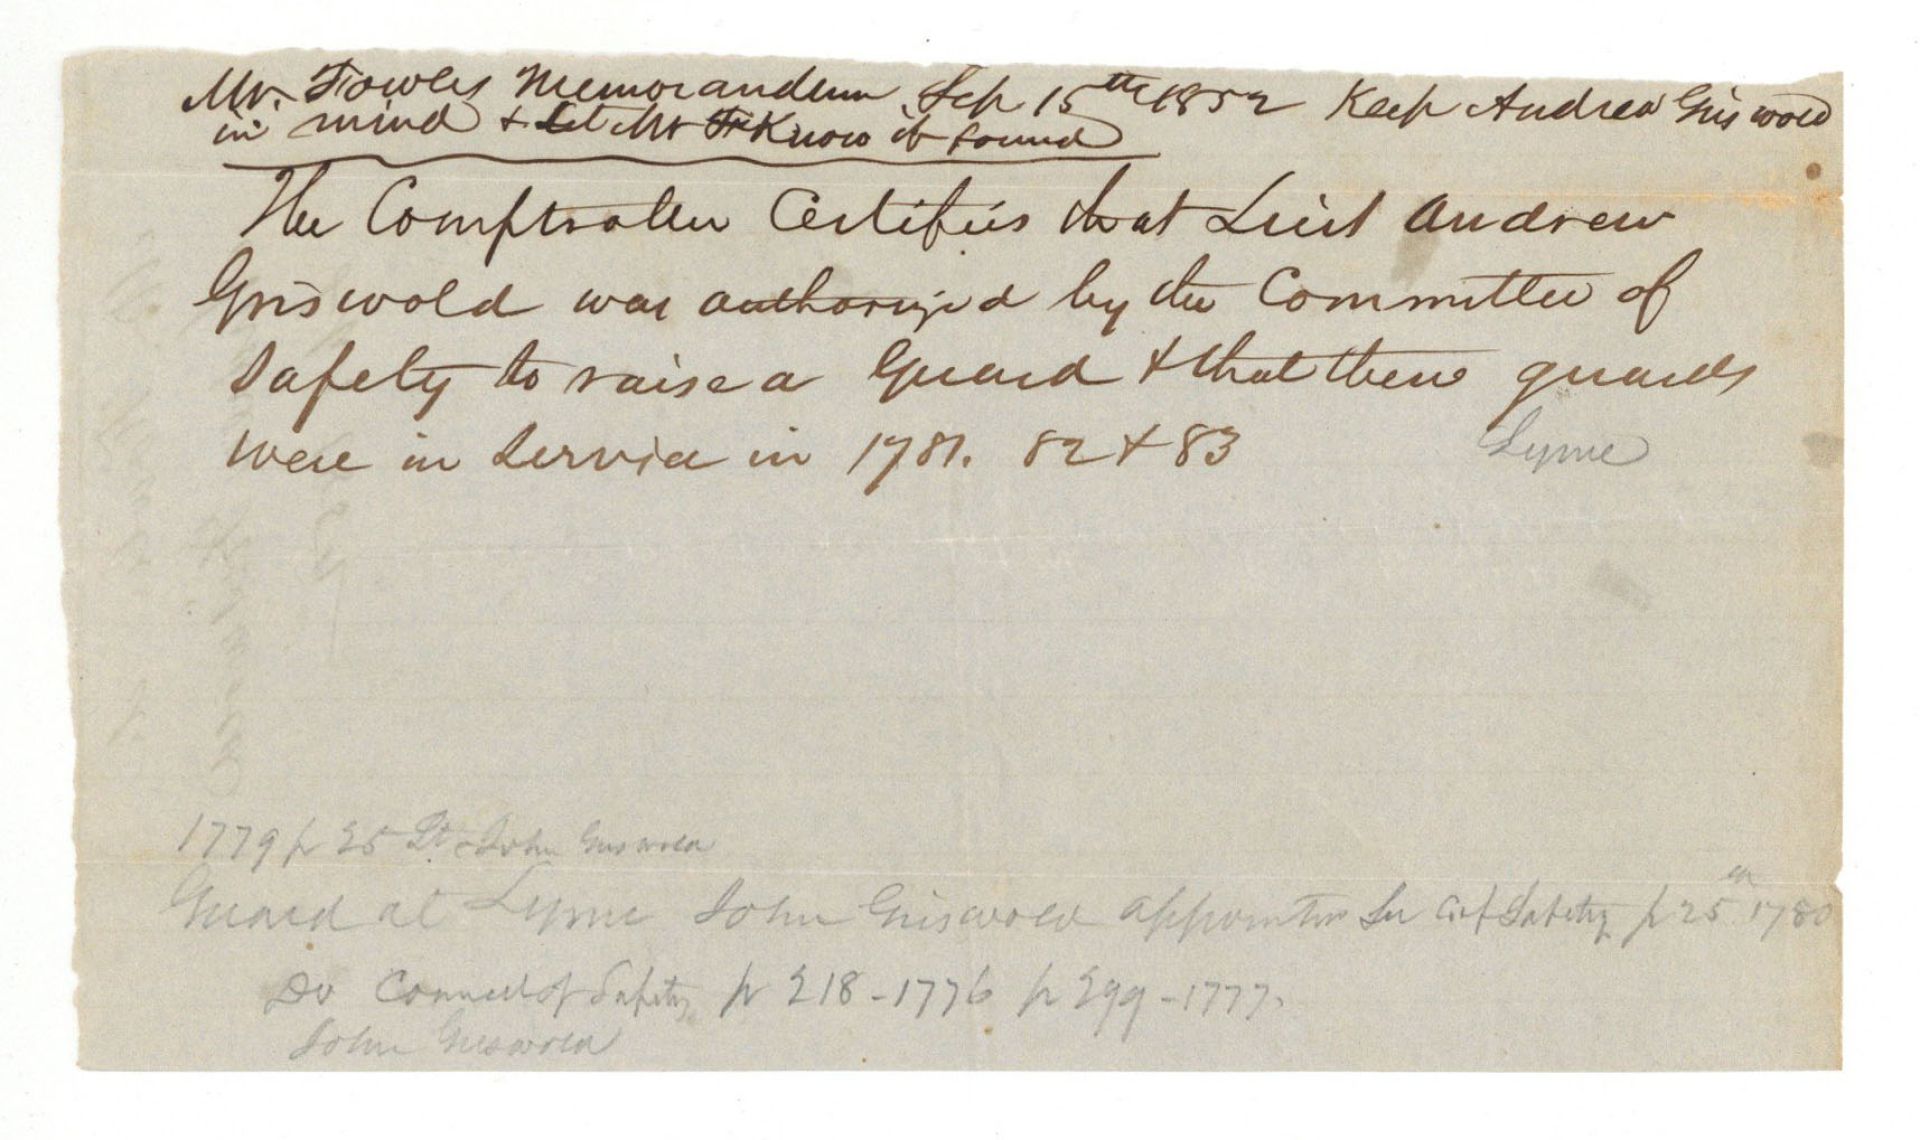 Mr. Fowles Memorandum Sep. 15th 1852 Keep Andrew Griswold
in mind & Let Mr F Know if found
The Comptroller Certifies that Lieut Andrew
Griswold was authorized by the Committee of
Safety to raise a Guard & that these guards
were in Service in 1781. 82 & 83
Lyme
1779 p 25 Lt John Griswold
Guard at Lyme John Griswold appointed C of Safety p 25 1780
Do Council of Safety p 218 - 1776 p 299 - 1777.
John Griswold